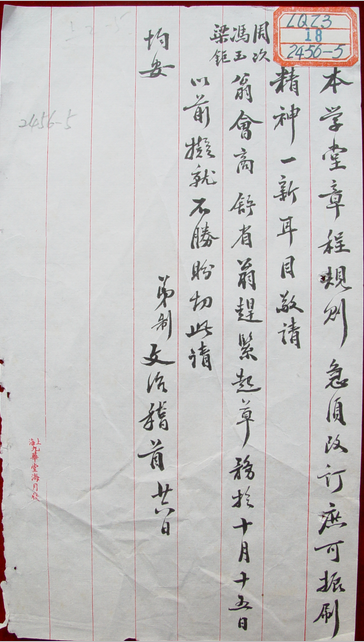 LQZ3
18
2456-5
2456-5
本学堂章程规则急須改订庶可振刷
精神一新耳目敬请
周玖
冯玉
梁钜
翁會商舒省翁趕緊起草務於十月十五日
以前擬就不勝盼切此请
均安
弟制文治稽首廿六日
上海九華堂